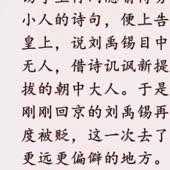 小人的诗句，便上告
皇上，说刘禹锡目中
无人，借诗讥讽新提
拔的朝中大人。于是
刚刚回京的刘禹锡再
度被贬，这一次去了
更远更偏僻的地方。